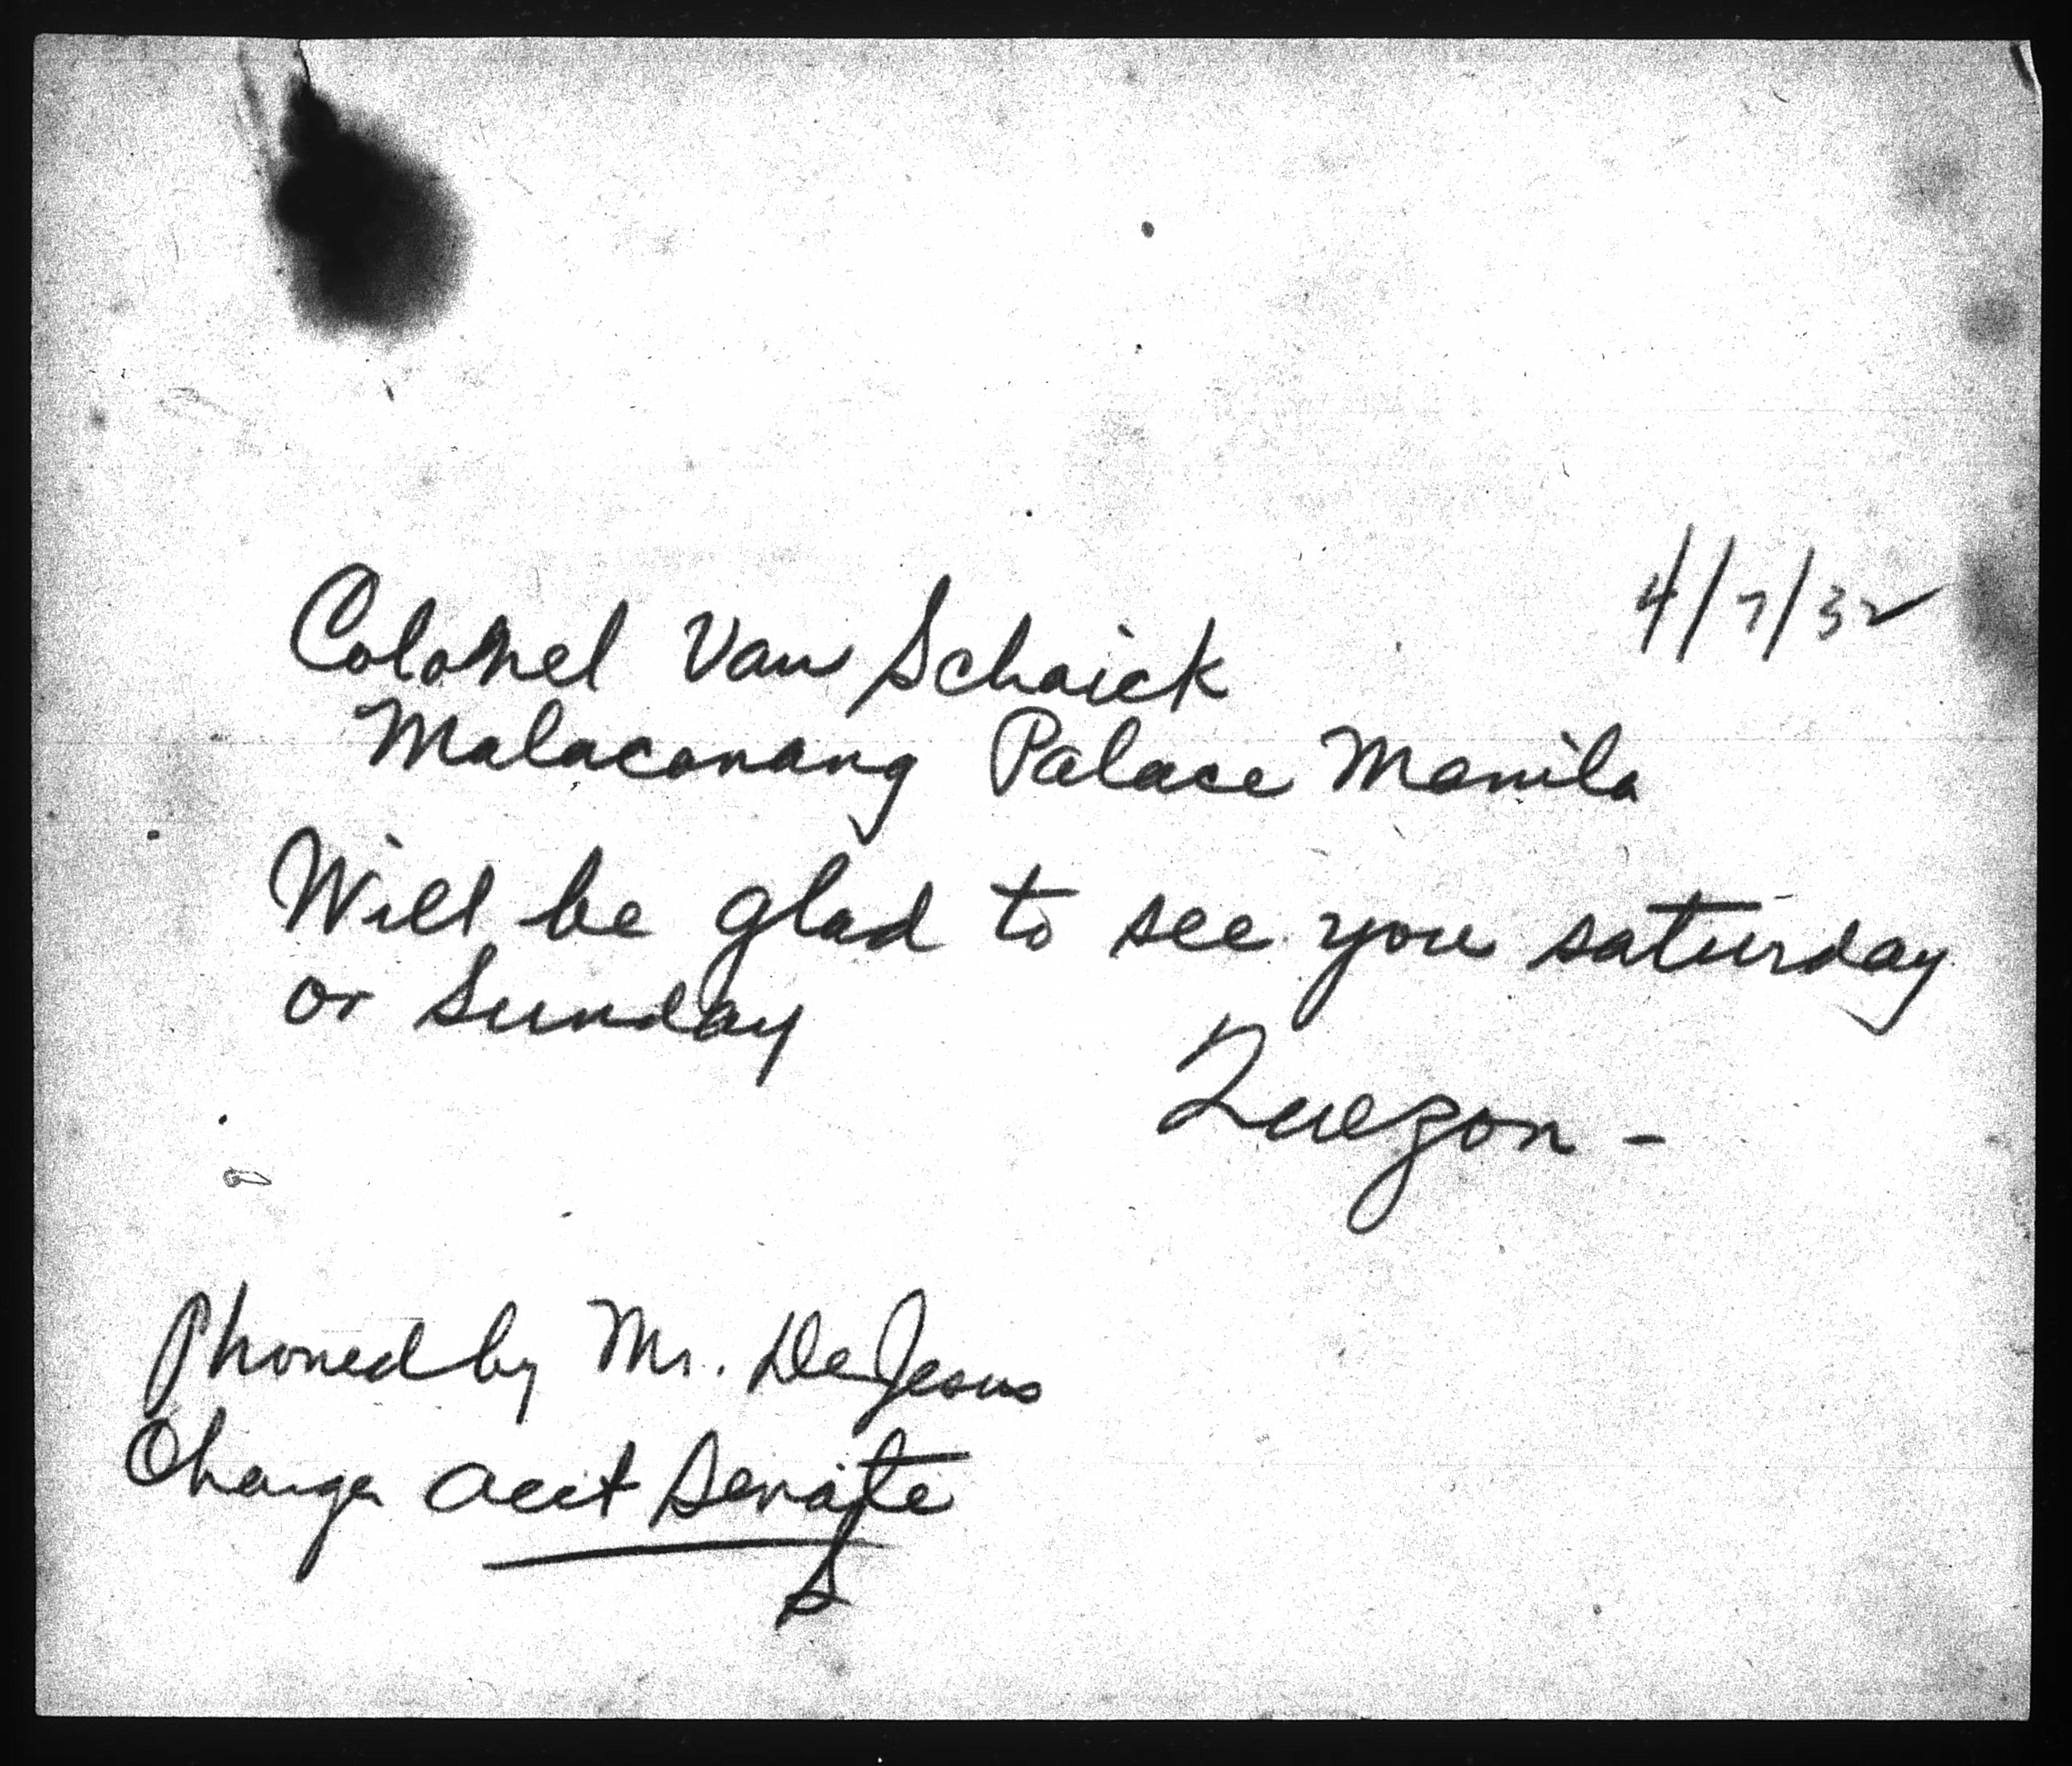 4/7/32
Colonel Van Schaick
Malacanang Palace Manila
Will be glad to see you saturday
or Sunday
Quezon -
Phoned by Mr. De Jesus
Charge acct Senate
S